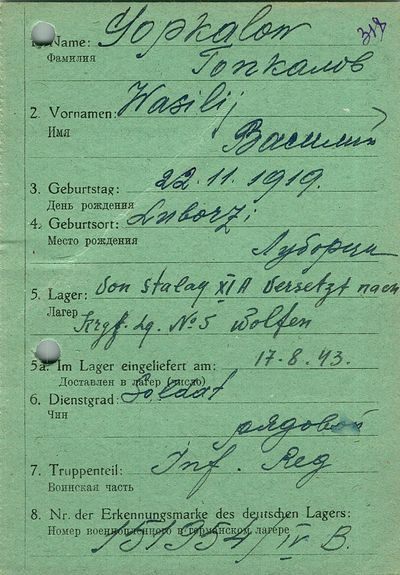 318
1. Name: Gopkalow
Фамилия
Гопкалов
2. Vornamen: Wasilij
Имя
Василий
3. Geburtstag: 22.11.1919.
День рождения
4. Geburtsort: Luborzi
Место рождения
Луборци
5. Lager: Von Stalag XI A versetzt nach
Лагерь
Krgf. Lg. No 5 Wolfen
5a. Im Lager eingeliefert am: 17.8.43.
Доставлен в лагер (число)
6. Dienstgrad: Soldat
Чин
рядовой
7. Truppenteil: Inf. Reg
Воинская часть
8. Nr. der Erkennungsmarke des deutschen Lagers:
Номер военнопленного в германском лагере
151954/ IV B.